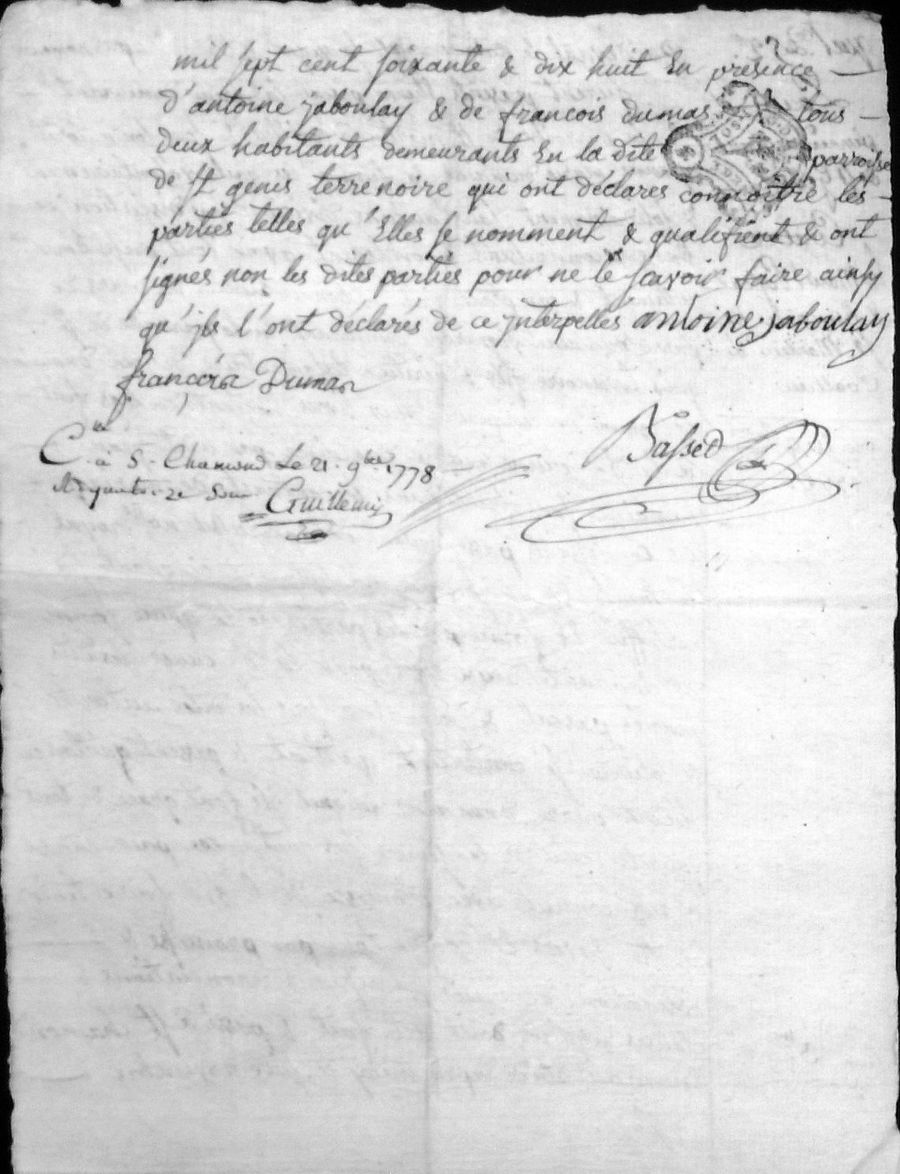 mil sept cent soixante & dix huit En presence
d'antoine jaboulay & de françois dumas tous
deux habitants demeurants En la dite parroisse
de st genis terrenoire qui ont déclares connoitre les
parties telles qu'Elles se nomment & qualifient & ont
signés non les dites parties pour ne le scavoir faire ainsy
qu'jls l'ont déclarés de ce jnterpelles antoine jaboulay
françois Dumas
Basset
à S. Chamond Le 21 9bre 1778
Guillemin